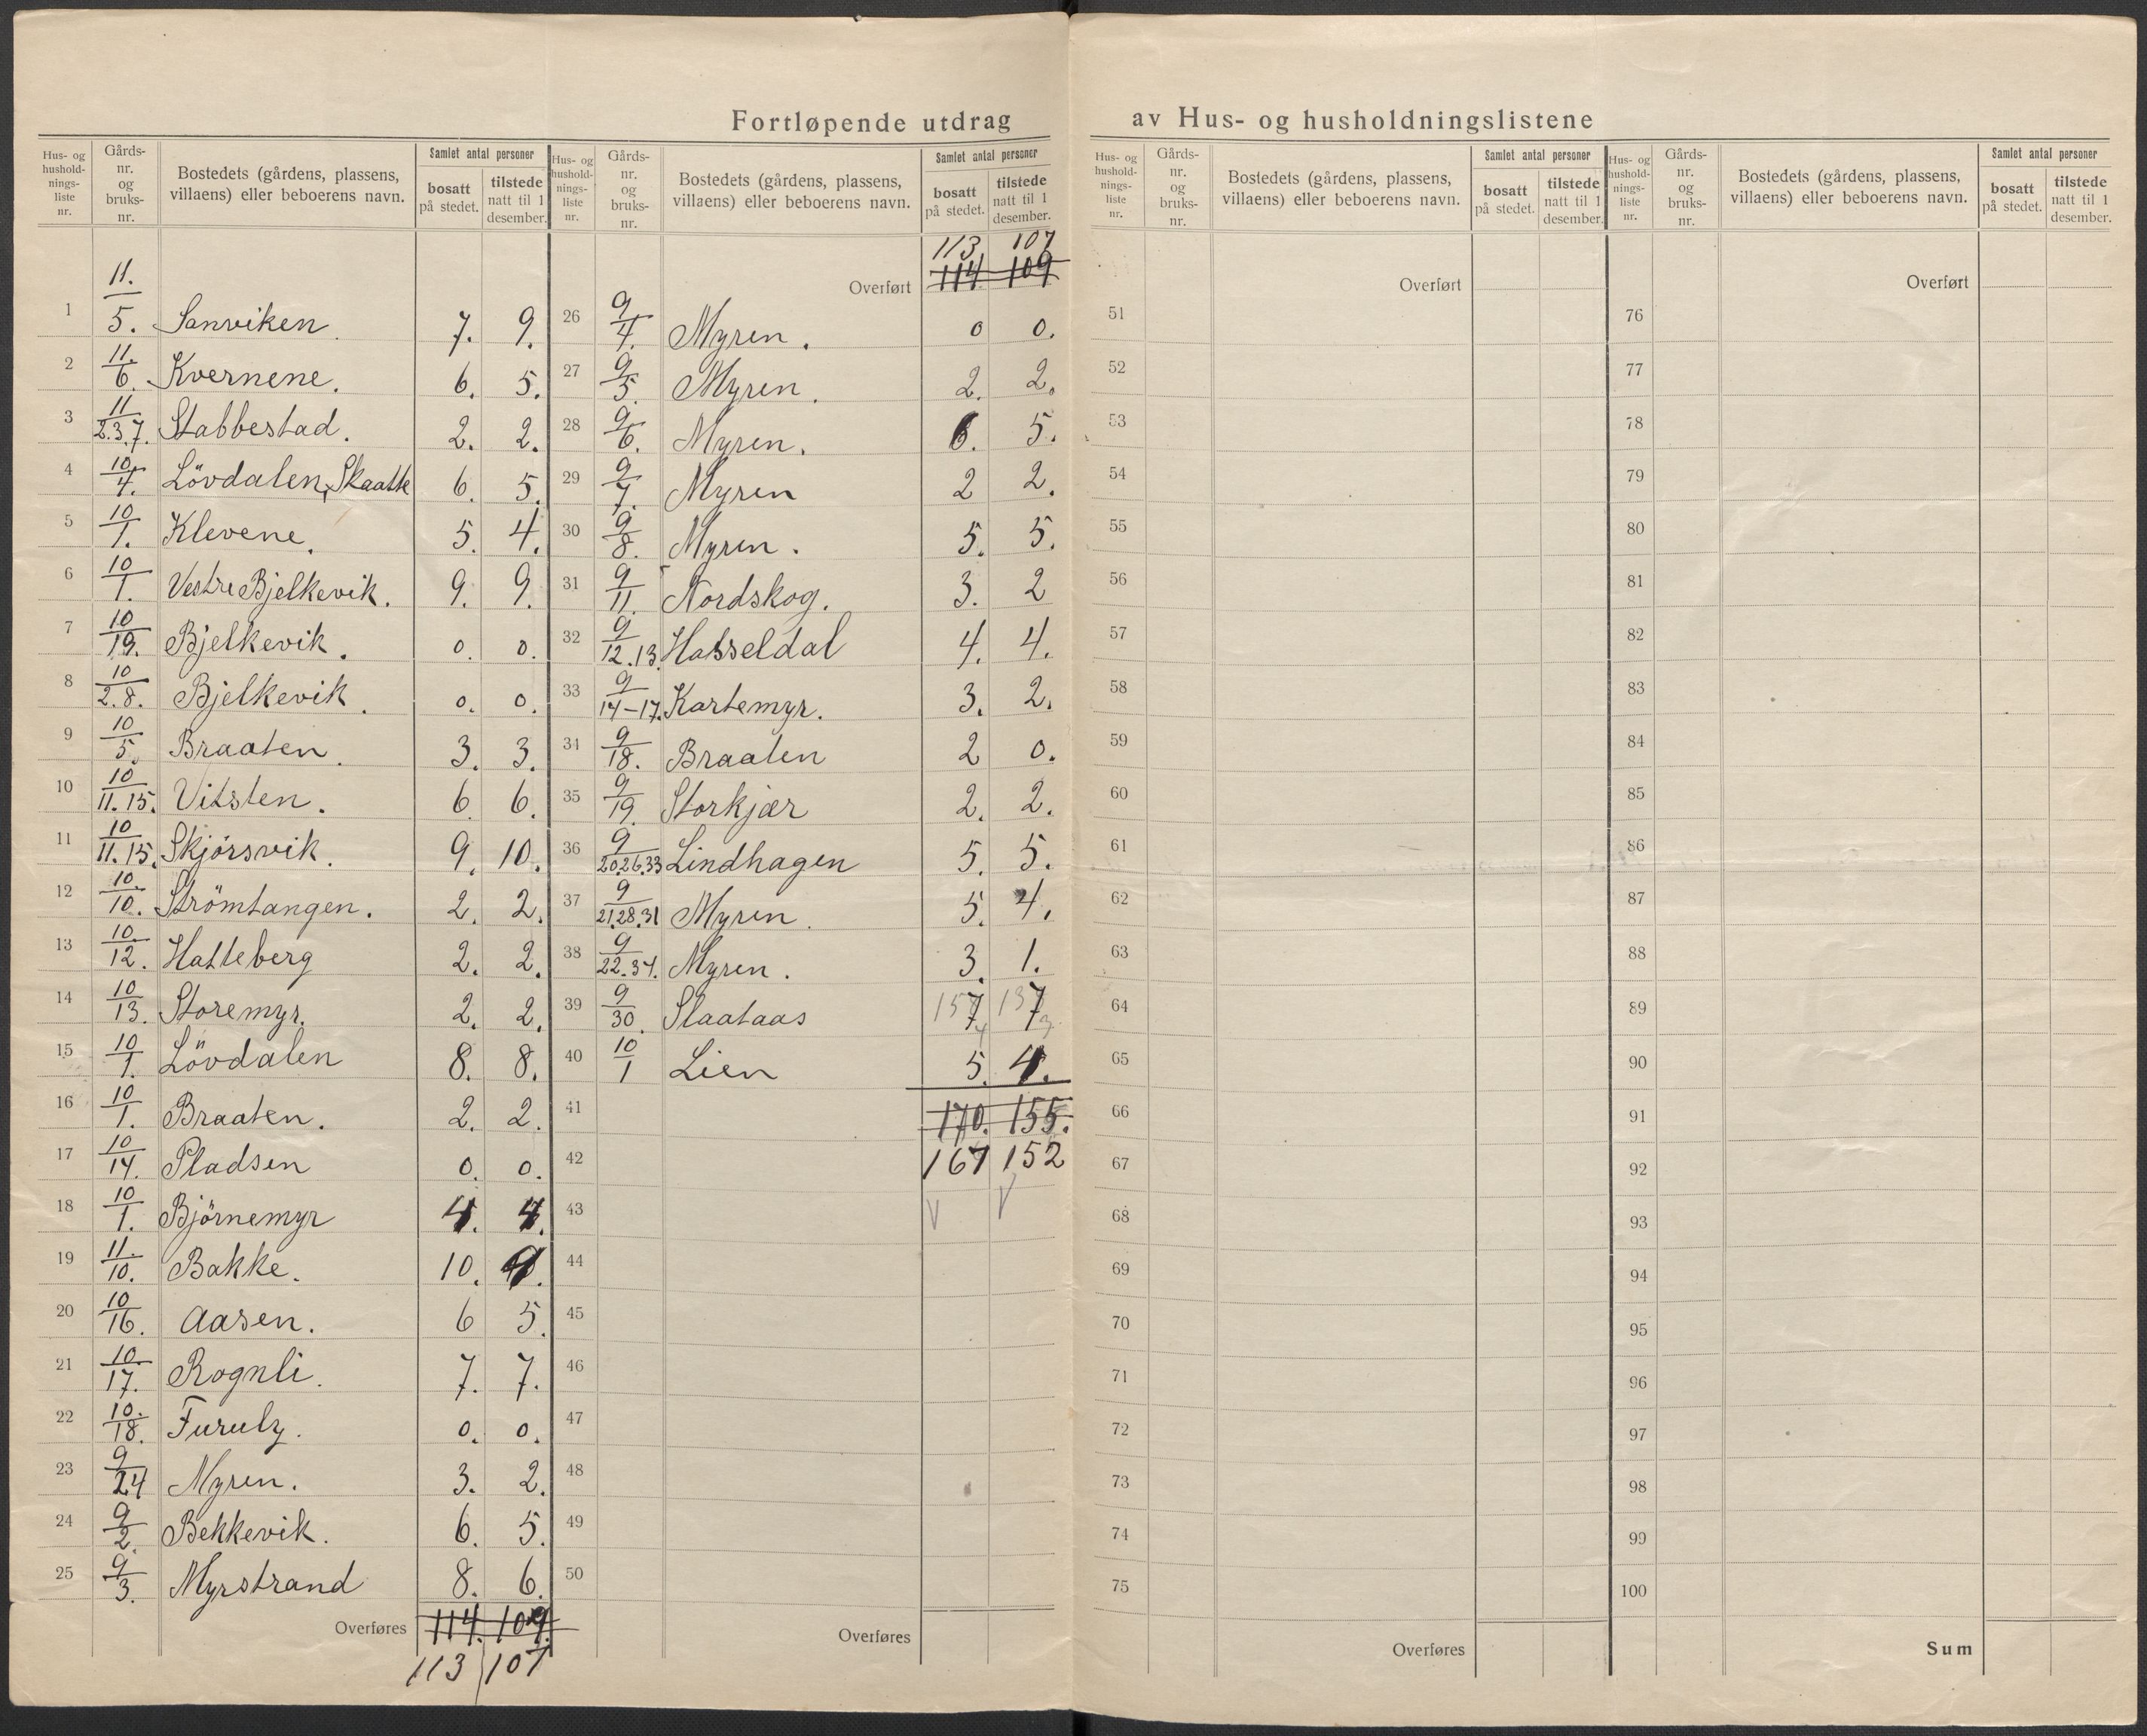 Fortløpende utdrag av Hus- og husholdningslistene
Hus- og hushold-nings-liste nr. | Gårds-nr. og bruks-nr. | Bostedets (gårdens, plassens, villaens) eller beboerens navn. | Samlet antal personer bosatt på stedet. | tilstede natt til 1 desember.
1 11./5. Sanviken 7. 9.
2 11./6. Kvernene. 6. 5.
3 11/2.3.7. Stabbestad. 2. 2.
4 10/4. Lövdalen, Skaatte 6. 5.
5 10/1. Klevene. 5. 4.
6 10/1. Vestre Bjelkevik. 9. 9.
7 10/19. Bjelkevik. 0. 0.
8 10/2.8. Bjelkevik. 0. 0.
9 10/5. Braaten. 3. 3.
10 10/11.15. Vitsten. 6. 6.
11 10/11.15. Skjörsvik. 9. 10.
12 10/10. Strömtangen. 2. 2.
13 10/12. Hatteberg 2. 2.
14 10/13. Storemyr. 2. 2.
15 10/1. Lövdalen 8. 8.
16 10/1. Braaten. 2. 2.
17 10/14. Pladsen 0. 0.
18 10/1. Björnemyr 4. 4.
19 11./10. Bakke. 10.
20 10/16. Aasen. 6 5.
21 10/17. Rognli. 7. 7.
22 10./18. Furuly. 0. 0.
23 9/24 Myren. 3. 2.
24 9/2. Bekkevik. 6. 5.
25 9/3. Myrstrand 8. 6.
Overføres 114. 109.
113 107
Hus- og hushold-nings-liste nr. | Gårds-nr. og bruks-nr. | Bostedets (gårdens, plassens, villaens) eller beboerens navn. | Samlet antal personer bosatt på stedet. | tilstede natt til 1 desember.
113 107
Overført 114 109
26 9/4. Myren. 0 0.
27 9/5. Myren. 2. 2.
28 9/6. Myren. 6. 5.
29 9/7. Myren 2 2.
30 9/8. Myren. 5. 5.
31 9/11. Nordskog. 3. 2
32 9/12.13. Hasseldal 4. 4.
33 9/14-17. Kartemyr. 3. 2.
34 9/18. Braaten 2 0.
35 9/19. Storkjær 2. 2.
36 9/20.26.33 Lindhagen 5. 5.
37 9/21.28.31 Myren. 5. 4.
38 9/22.34. Myren. 3. 1.
39 9/30. Slaataas 7 7
40 10/1 Lien 5. 4.
41 170. 155.
42 167 152
43
44
45
46
47
48
49
50
Overføres
Hus- og hushold-nings-liste nr. | Gårds-nr. og bruks-nr. | Bostedets (gårdens, plassens, villaens) eller beboerens navn. | Samlet antal personer bosatt på stedet. | tilstede natt til 1 desember.
Overført
51
52
53
54
55
56
57
58
59
60
61
62
63
64
65
66
67
68
69
70
71
72
73
74
75
Overføres
Hus- og hushold-nings-liste nr. | Gårds-nr. og bruks-nr. | Bostedets (gårdens, plassens, villaens) eller beboerens navn. | Samlet antal personer bosatt på stedet. | tilstede natt til 1 desember.
Overført
76
77
78
79
80
81
82
83
84
85
86
87
88
89
90
91
92
93
94
95
96
97
98
99
100
Sum